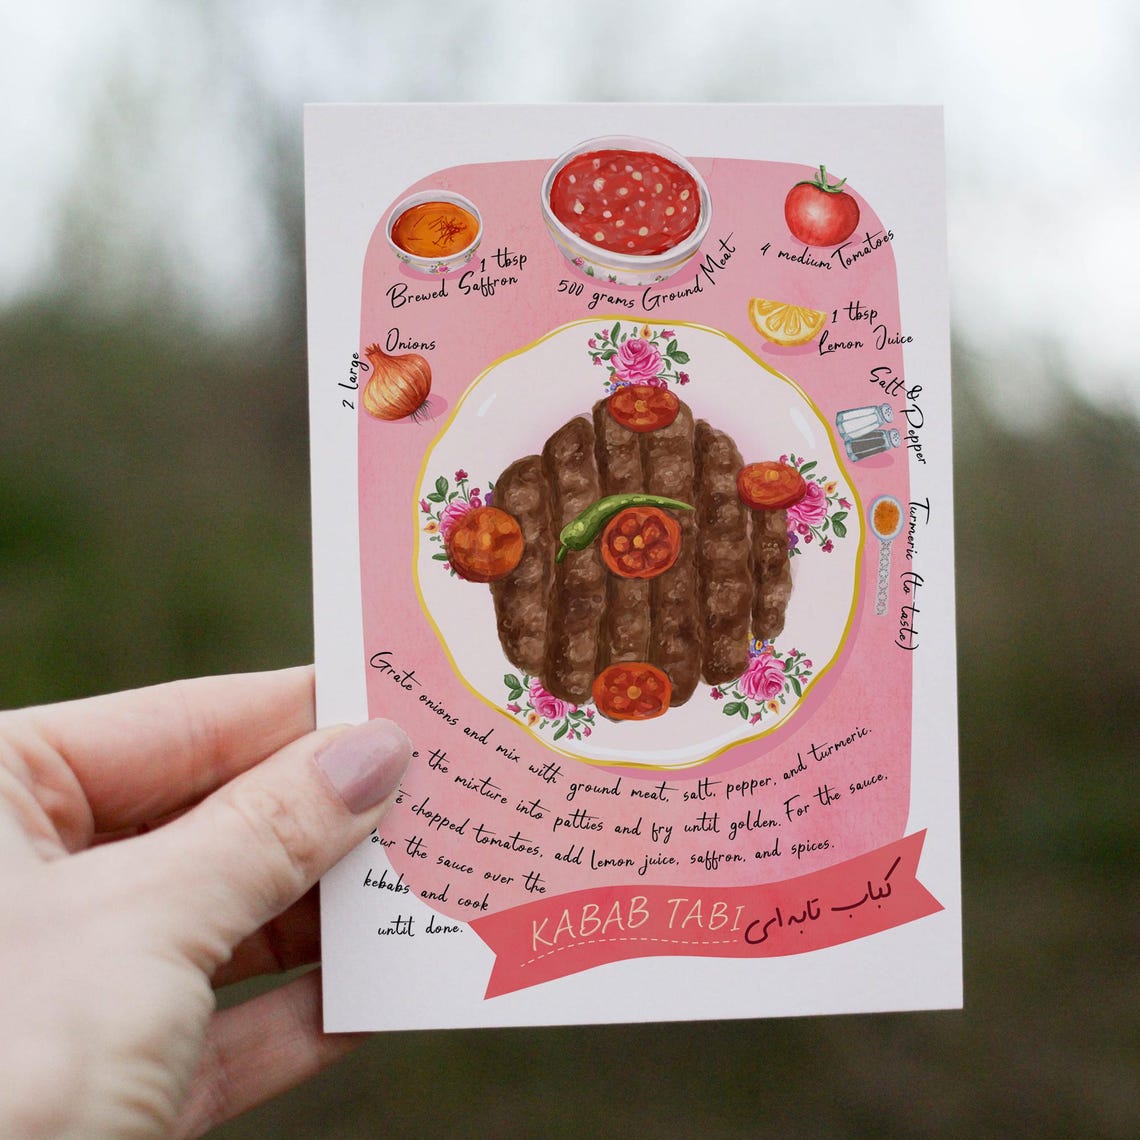 1 tbsp
Brewed Saffron
500 grams Ground Meat
4 medium Tomatoes
2 Large
Onions
1 tbsp
Lemon Juice
Salt & Pepper
Turmeric (to taste)
Grate onions and mix with ground meat, salt, pepper, and turmeric.
the mixture into patties and fry until golden. For the sauce,
chopped tomatoes, add lemon juice, saffron, and spices.
the sauce over the
kebabs and cook
until done.
KABAB TABI
کباب تابه‌ای